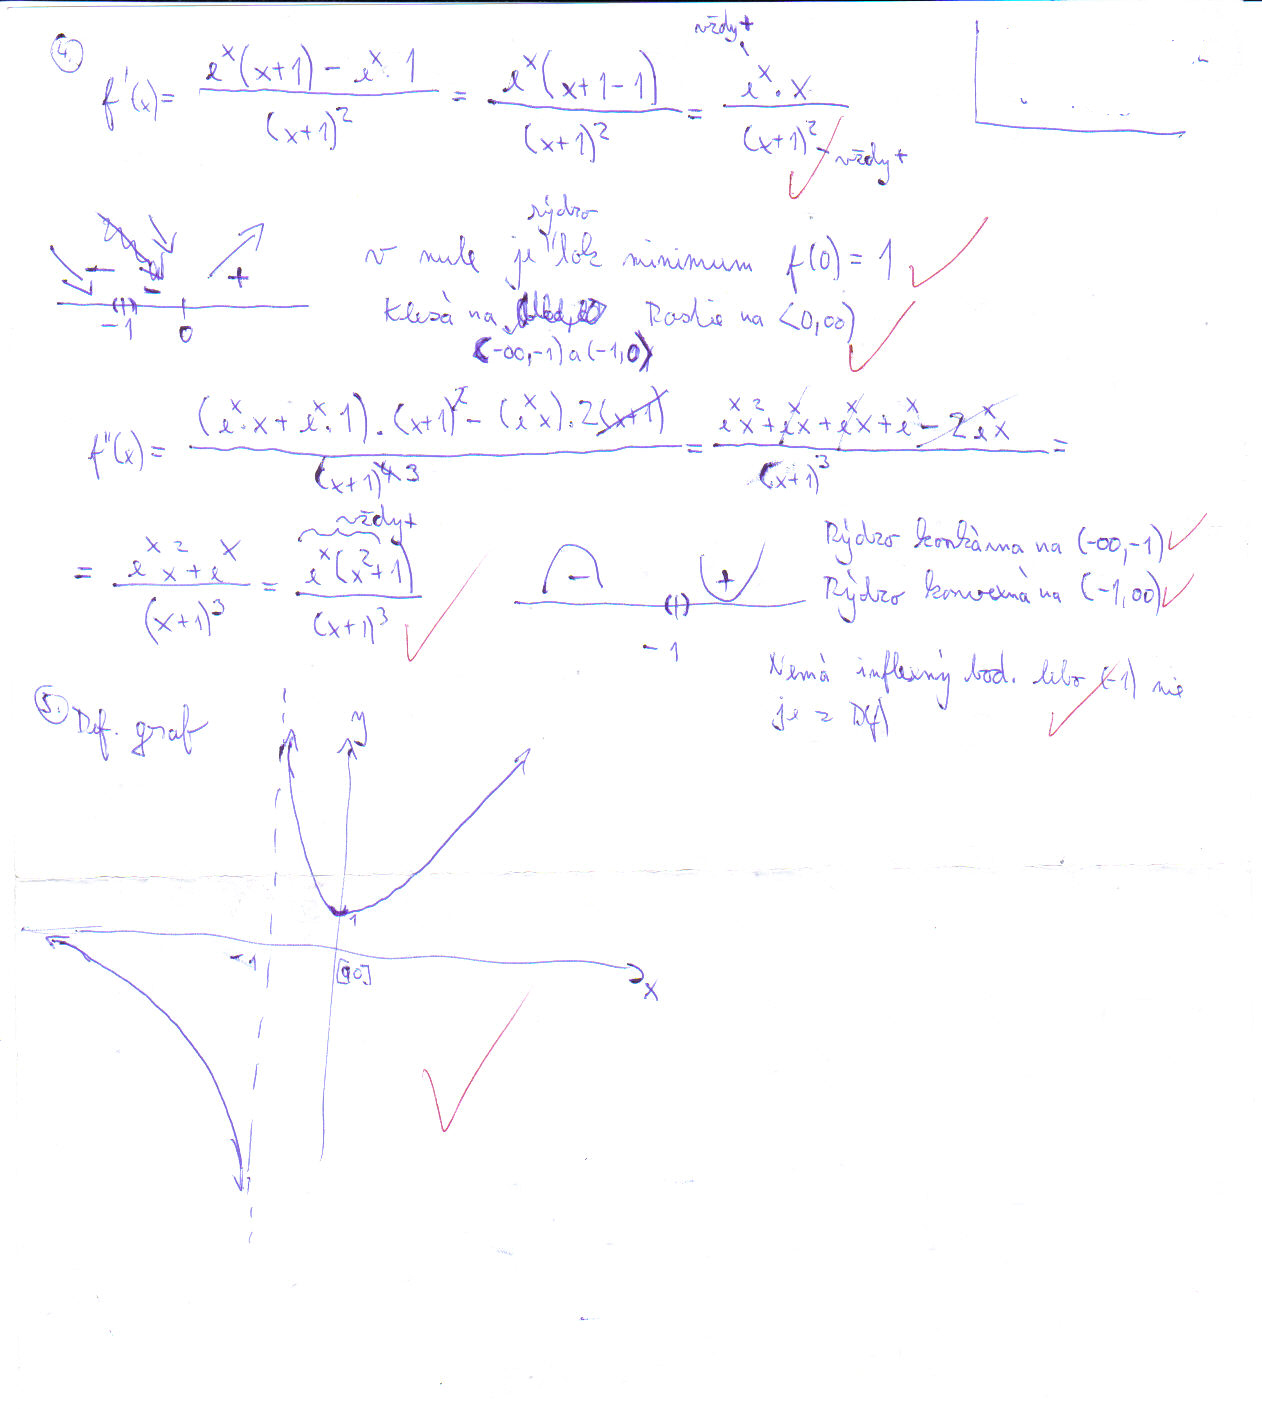 4.
vždy+
f'(x) = (e^x(x+1) - e^x·1)/(x+1)^2 = e^x(x+1-1)/(x+1)^2 = e^x·x/(x+1)^2
vždy+
- - +
-1 0
rýdzo
v nule je lok minimum f(0) = 1
Klesá na Rastie na <0,∞)
(-∞,-1) a (-1,0)
f''(x) = ((e^x·x + e^x·1)·(x+1)^2 - (e^x x)·2(x+1))/(x+1)^4 3 = (e^x x^2 + e^x x + e^x x + e^x - 2e^x x)/(x+1)^3 =
vždy+
= (e^x x^2 + e^x)/(x+1)^3 = e^x(x^2+1)/(x+1)^3
- +
-1
Rýdzo konkávna na (-∞,-1)
Rýdzo konvexná na (-1,∞)
Nemá inflexný bod. lebo (-1) nie
je z D(f)
5. Def. graf
y
1
-1
[0,0]
x